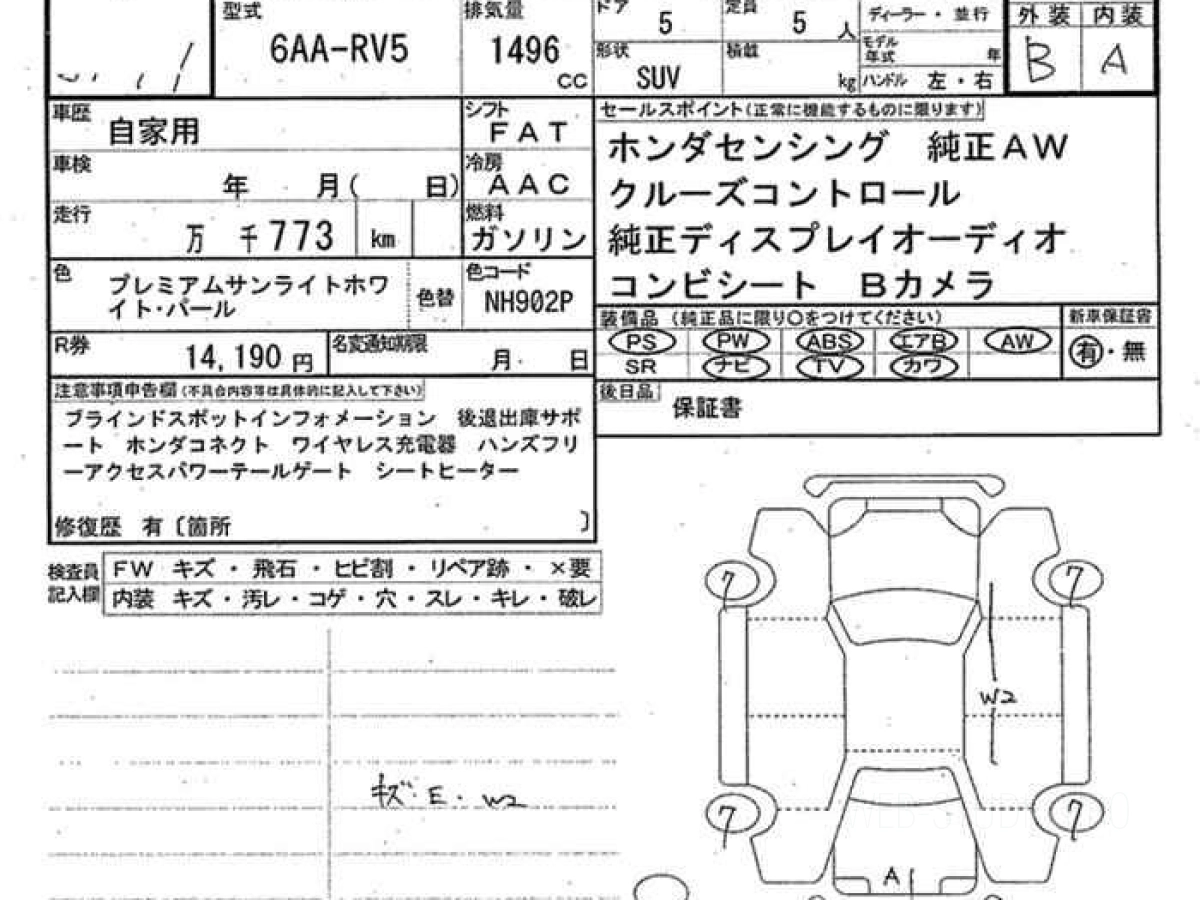 型式 排気量 ドア 5 定員 5 人 ディーラー・並行 外装 内装
6AA-RV5 1496 cc 形状 SUV 積載 kg モデル年式 年 B A
ハンドル 左・右
車歴 自家用 シフト FAT セールスポイント(正常に機能するものに限ります)
車検 年 月( 日) 冷房 AAC ホンダセンシング 純正AW
クルーズコントロール
走行 万 千773 km 燃料 ガソリン 純正ディスプレイオーディオ
コンビシート Bカメラ
色 プレミアムサンライトホワ
イト・パール 色替 色コード NH902P
装備品 (純正品に限り○をつけてください) 新車保証書
PS PW ABS エアB AW 有・無
SR ナビ TV カワ
R券 14,190 円 名変通知期限 月 日
後日品 保証書
注意事項申告欄(不具合内容等は具体的に記入して下さい)
ブラインドスポットインフォメーション 後退出庫サポ
ート ホンダコネクト ワイヤレス充電器 ハンズフリ
ーアクセスパワーテールゲート シートヒーター
修復歴 有〔箇所 〕
検査員記入欄 FW キズ・飛石・ヒビ割・リペア跡・×要
内装 キズ・汚レ・コゲ・穴・スレ・キレ・破レ
7 7
W2
キズ E. W2
7 7
A1